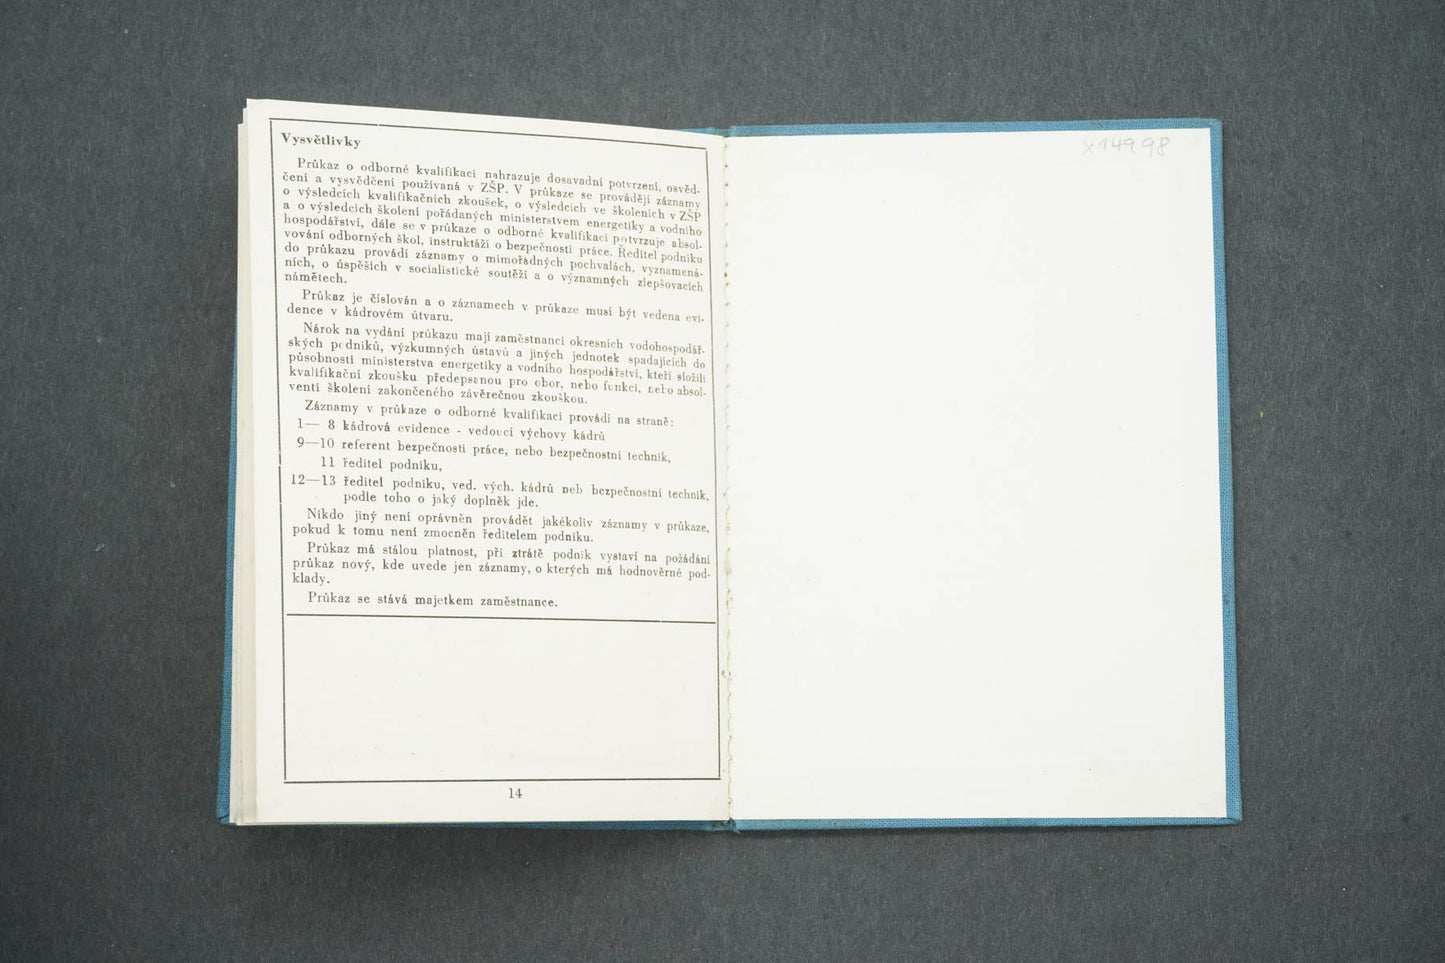 Vysvětlivky
Průkaz o odborné kvalifikaci nahrazuje dosavadní potvrzení, osvěd-
čení a vysvědčení používaná v ZŠP. V průkaze se provádějí záznamy
o výsledcích kvalifikačních zkoušek, o výsledcích ve školeních v ZŠP
a o výsledcích školení pořádaných ministerstvem energetiky a vodního
hospodářství, dále se v průkaze o odborné kvalifikaci potvrzuje absol-
vování odborných škol, instruktáží o bezpečnosti práce. Ředitel podniku
do průkazu provádí záznamy o mimořádných pochvalách, vyznamená-
ních, o úspěších v socialistické soutěži a o významných zlepšovacích
námětech.
Průkaz je číslován a o záznamech v průkaze musí být vedena evi-
dence v kádrovém útvaru.
Nárok na vydání průkazu mají zaměstnanci okresních vodohospodář-
ských podniků, výzkumných ústavů a jiných jednotek spadajících do
působnosti ministerstva energetiky a vodního hospodářství, kteří složili
kvalifikační zkoušku předepsanou pro obor, nebo funkci, nebo absol-
venti školení zakončeného závěrečnou zkouškou.
Záznamy v průkaze o odborné kvalifikaci provádí na straně:
1— 8 kádrová evidence - vedoucí výchovy kádrů
9—10 referent bezpečnosti práce, nebo bezpečnostní technik,
11 ředitel podniku,
12—13 ředitel podniku, ved. vých. kádrů neb bezpečnostní technik,
podle toho o jaký doplněk jde.
Nikdo jiný není oprávněn provádět jakékoliv záznamy v průkaze,
pokud k tomu není zmocněn ředitelem podniku.
Průkaz má stálou platnost, při ztrátě podnik vystaví na požádání
průkaz nový, kde uvede jen záznamy, o kterých má hodnověrné pod-
klady.
Průkaz se stává majetkem zaměstnance.
14
x14998